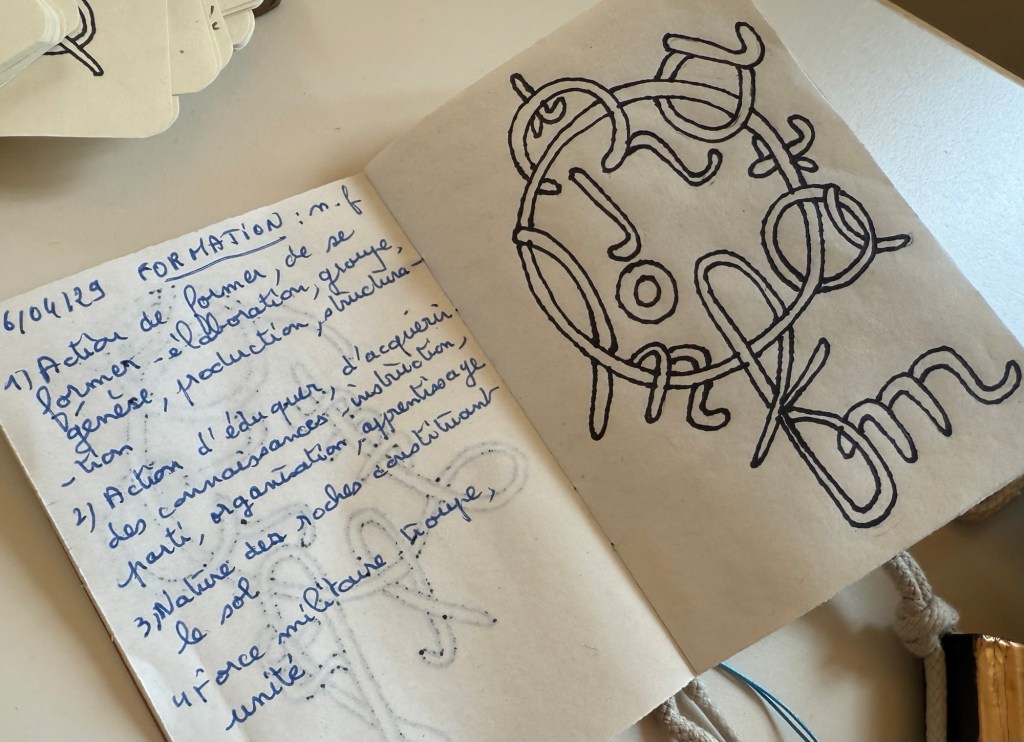 FORMATION : n.f
6/04/29
1) Action de former, de se
former - élaboration, groupe,
genèse, production, structura-
-tion
2) Action d'éduquer, d'acquérir
des connaissances - institution,
parti, organisation, apprentissage
3) Nature des roches constituant
le sol
4 Force militaire troupe,
unité